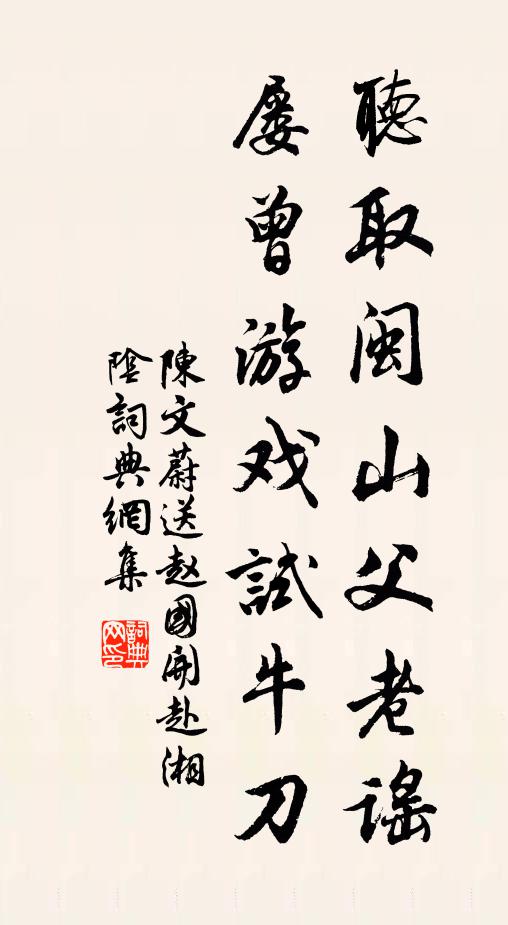 聽取閩山父老謠
屢曾游戏試牛刀
陳文蔚送赵國開赴湘
陰詞典網集
詞典
网印